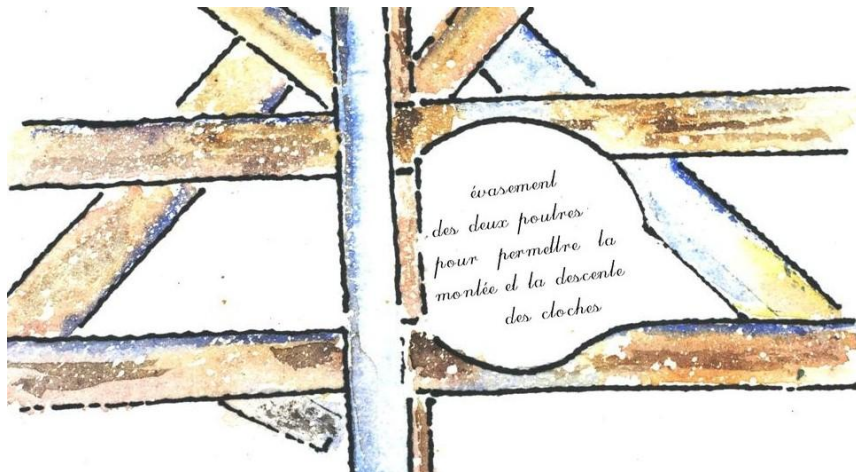 évasement
des deux poutres
pour permettre la
montée et la descente
des cloches